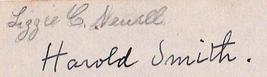 Lizzie C. Newell.
Harold Smith.